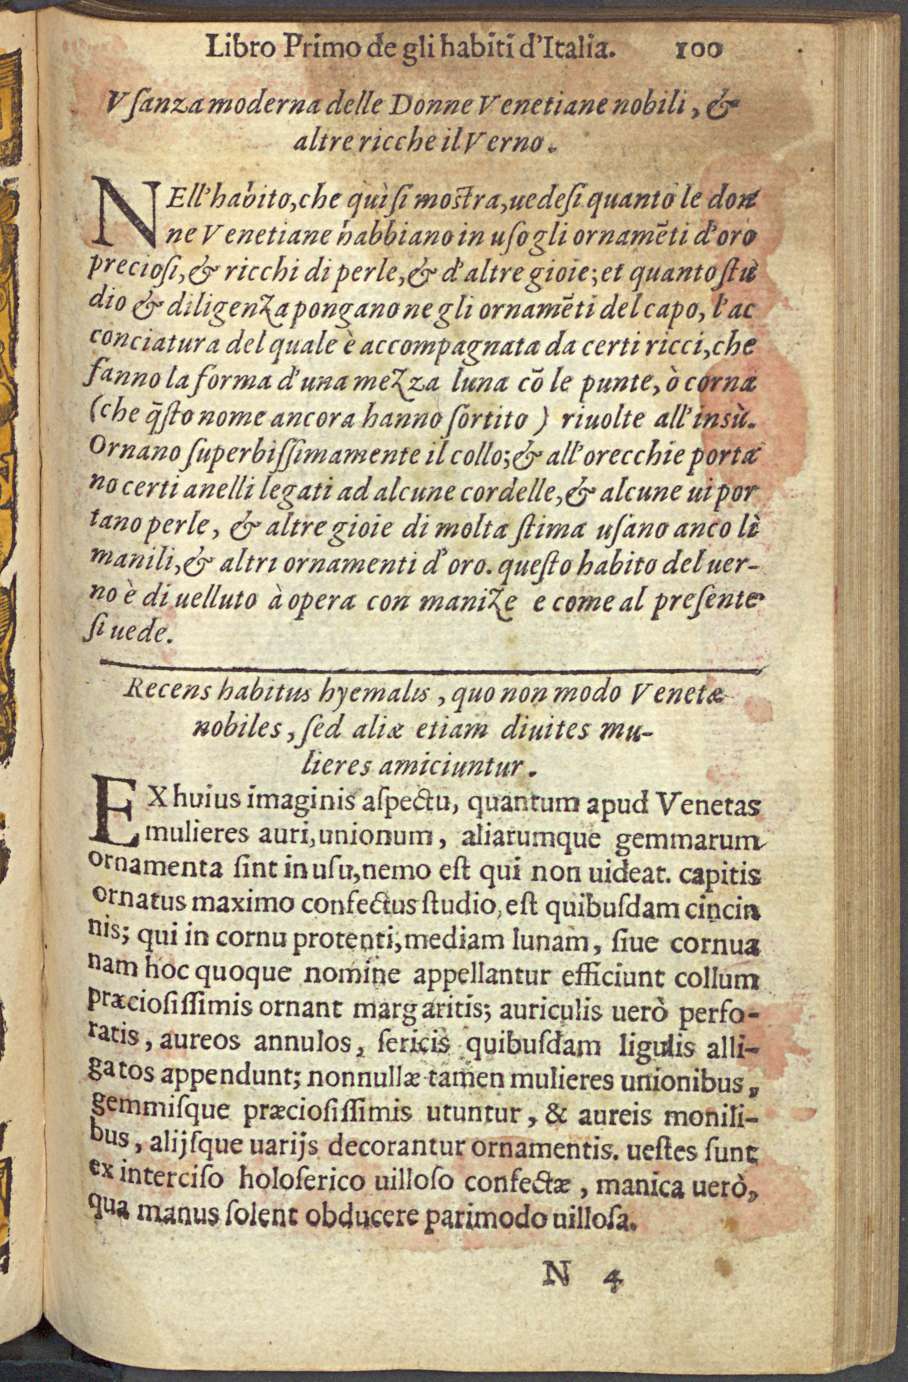 Libro Primo de gli habiti d'Italia. 100
Vsanza moderna delle Donne Venetiane nobili, &
altre ricche il Verno.
NEll'habito, che quì ſi moſtra, uedeſi quanto le don
ne Venetiane habbiano in uſo gli ornamẽti d'oro
precioſi, & ricchi di perle, & d'altre gioie; et quanto ſtu
dio & diligenza pongano ne gli ornamẽti del capo, l'ac
conciatura del quale è accompagnata da certi ricci, che
fanno la forma d'una mezza luna cõ le punte, ò corna
(che q̃ſto nome ancora hanno ſortito) riuolte all'insù.
Ornano ſuperbiſſimamente il collo; & all'orecchie porta
no certi anelli legati ad alcune cordelle, & alcune ui por
tano perle, & altre gioie di molta ſtima uſano anco lì
manili, & altri ornamenti d'oro. queſto habito del uer-
no è di uelluto à opera con manize e come al preſente
ſi uede.
Recens habitus hyemalis, quo non modo Venetæ
nobiles, ſed aliæ etiam diuites mu-
lieres amiciuntur.
EX huius imaginis aſpectu, quantum apud Venetas
mulieres auri, unionum, aliarumque gemmarum
ornamenta ſint in uſu, nemo eſt qui non uideat. capitis
ornatus maximo confectus ſtudio, eſt quibuſdam cincin
nis; qui in cornu protenti, mediam lunam, ſiue cornua
nam hoc quoque nomine appellantur efficiunt collum
præcioſiſſimis ornant margaritis; auriculis uerò perfo-
ratis, aureos annulos, ſericis quibuſdam ligulis alli-
gatos appendunt; nonnullæ tamen mulieres unionibus,
gemmiſque præcioſiſſimis utuntur, & aureis monili-
bus, alijſque uarijs decorantur ornamentis. ueſtes ſunt
ex interciſo holoſerico uilloſo confectæ, manica uerò,
qua manus ſolent obducere parimodo uilloſa.
N 4